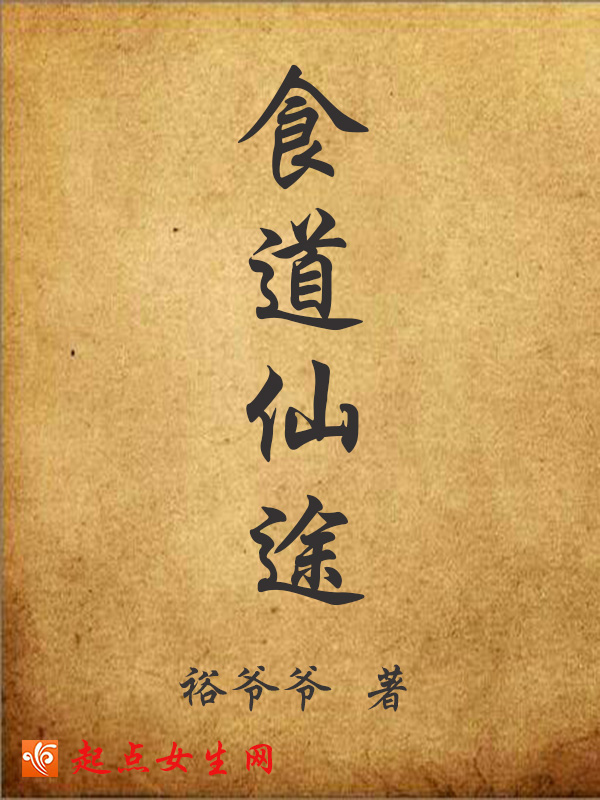 食道仙途
裕爷爷 著
起点女生网